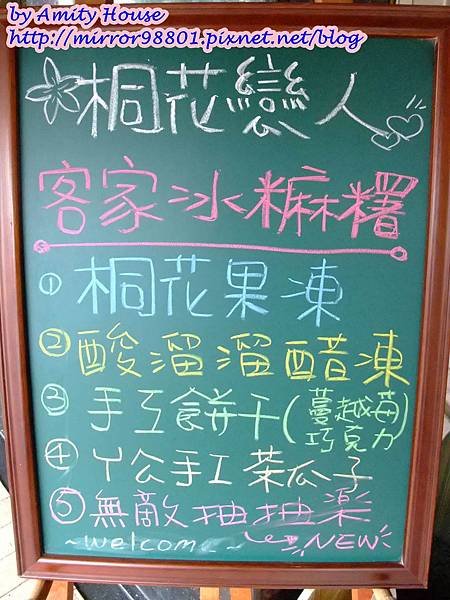 by Amity House
http://mirror98801.pixnet.net/blog
桐花戀人
客家冰麻糬
① 桐花果凍
② 酸溜溜醋凍
③ 手工餅干(蔓越莓 巧克力)
④ ㄚ公手工菜瓜子
⑤ 無敵抽抽樂
~welcom~ NEW